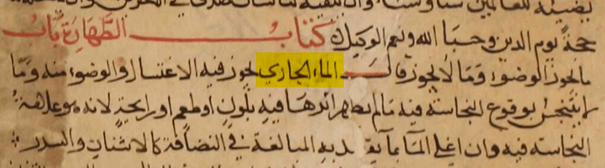 حجة يوم الدين وحسبنا الله ونعم الوكيل كتاب الطهارة باب
ما يجوز الوضوء وما لا يجوز قال الماء الجاري يجوز فيه الاغتسال والوضوء منه وما
لا يتنجس بوقوع النجاسة فيه ما لم يظهر اثرها فيه بلون او طعم او رايحة لانه
النجاسة فيه وان اغلى الماء المبالغة في النضافة كالاشنان والسدر